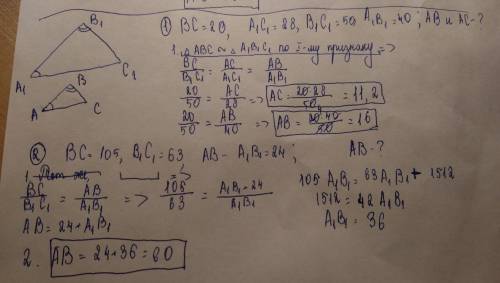 ① BC=20, A₁C₁=28, B₁C₁=50 A₁B₁=40; AB и AC-?
B₁
A₁
C₁
B
A
C
1. ABC ~ A₁B₁C₁ по I-му признаку =>
BC/B₁C₁ = AC/A₁C₁ = AB/A₁B₁
20/50 = AC/28 => AC = 20·28/50 = 11,2
20/50 = AB/40 => AB = 20·40/50 = 16
② BC=105, B₁C₁=63 AB-A₁B₁=24; AB-?
1. =>
BC/B₁C₁ = AB/A₁B₁ => 105/63 = A₁B₁-24/A₁B₁
AB=24+A₁B₁
105 A₁B₁ = 63 A₁B₁ + 1512
1512 = 42 A₁B₁
A₁B₁ = 36
2. AB = 24+36=60